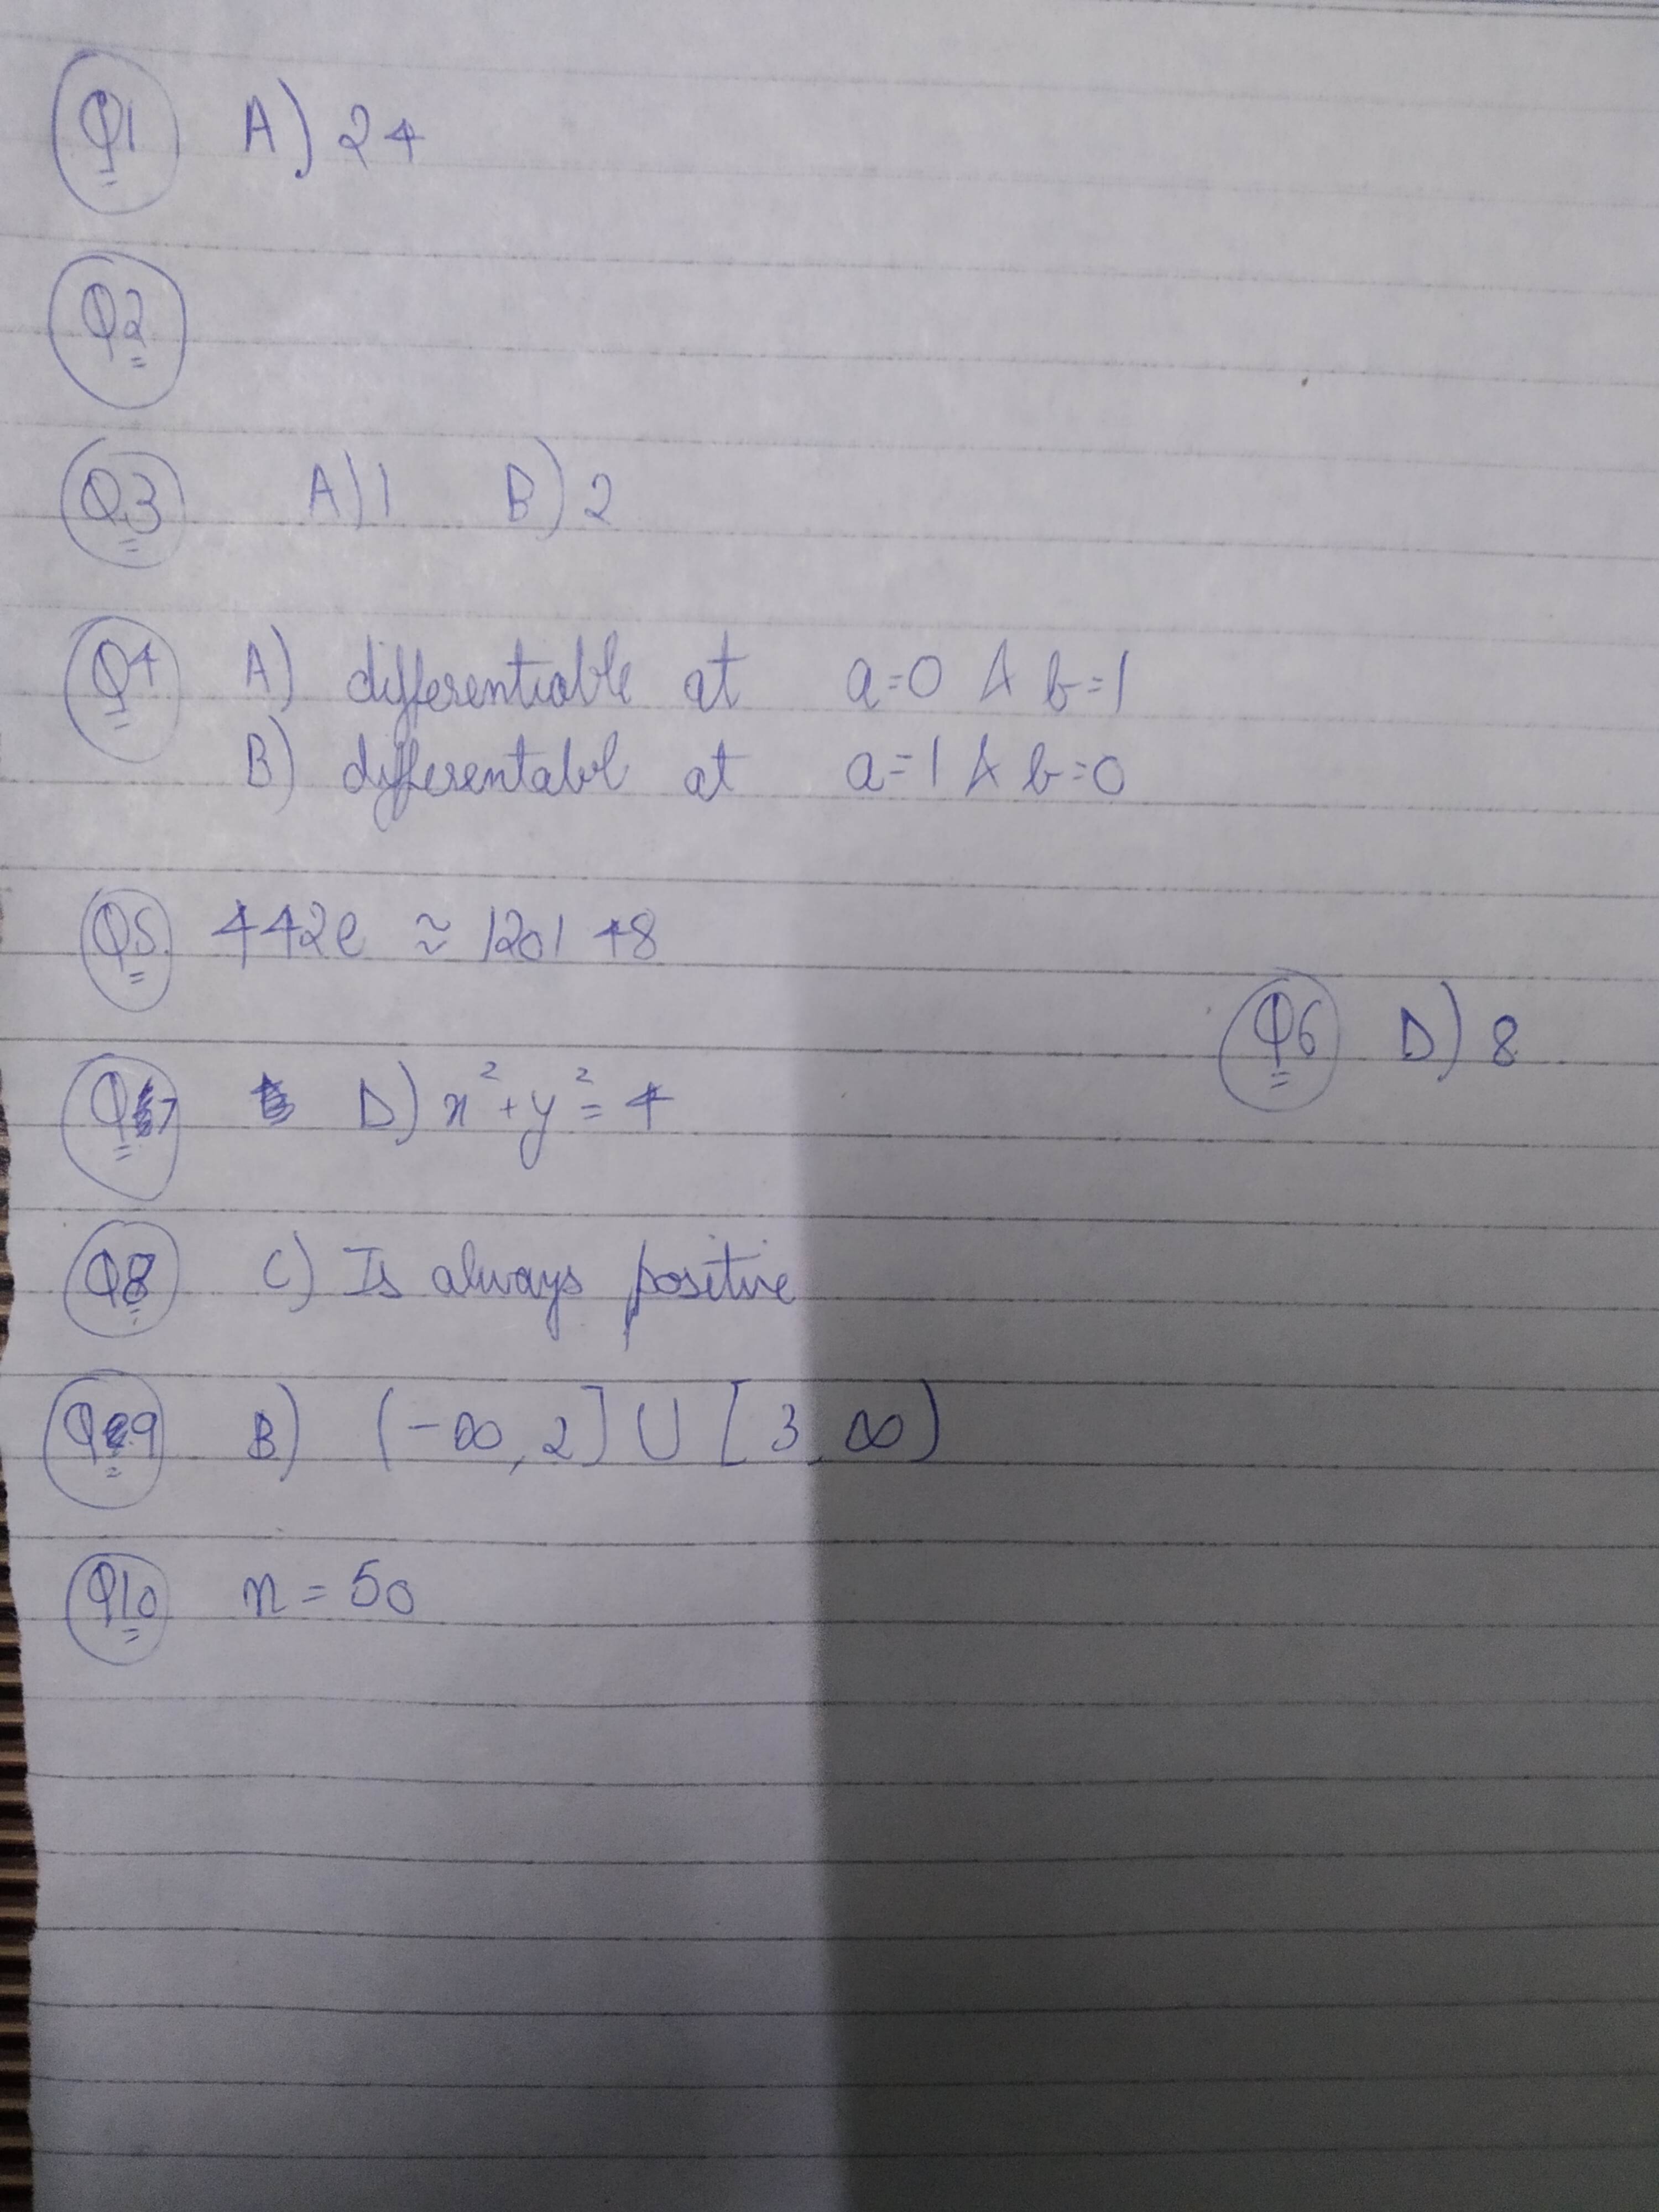 Q1 A) 24
Q2
Q3 A) 1 B) 2
Q4 A) differentiable at a=0 & b=1
B) differentabl at a=1 & b=0
Q5. 442e ≈ 1201 48
Q6 D) 8
Q7 D) x²+y²=4
Q8 C) Is always positive
Q9 B) (-∞,2] ∪ [3,∞)
Q10 n=50